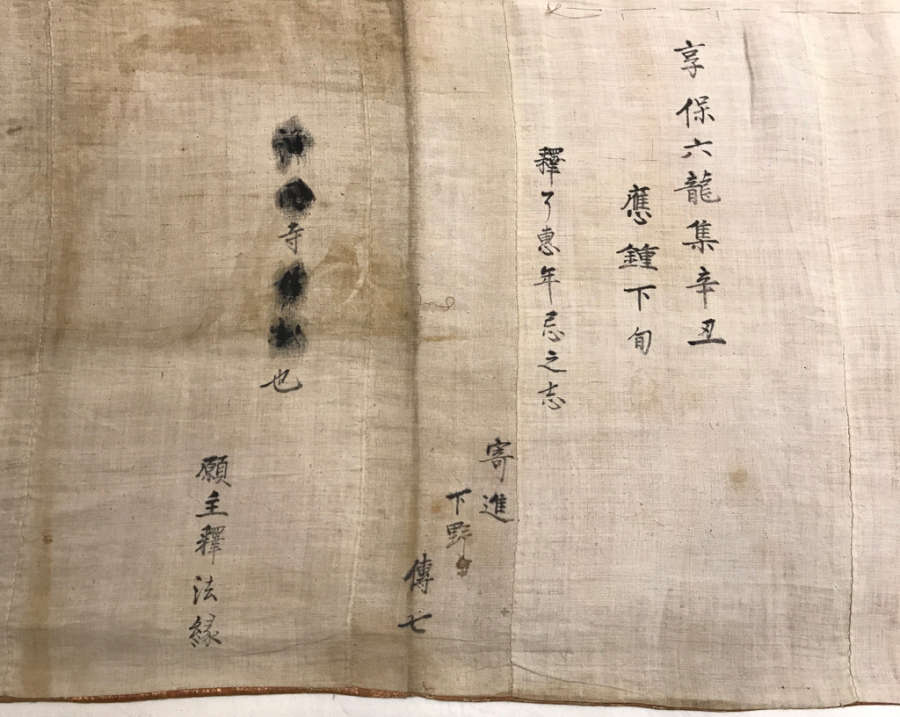 享保六龍集辛丑
應鐘下旬
釋了惠年忌之志
寄進
下野
傳七
寺也
願主釋法縁